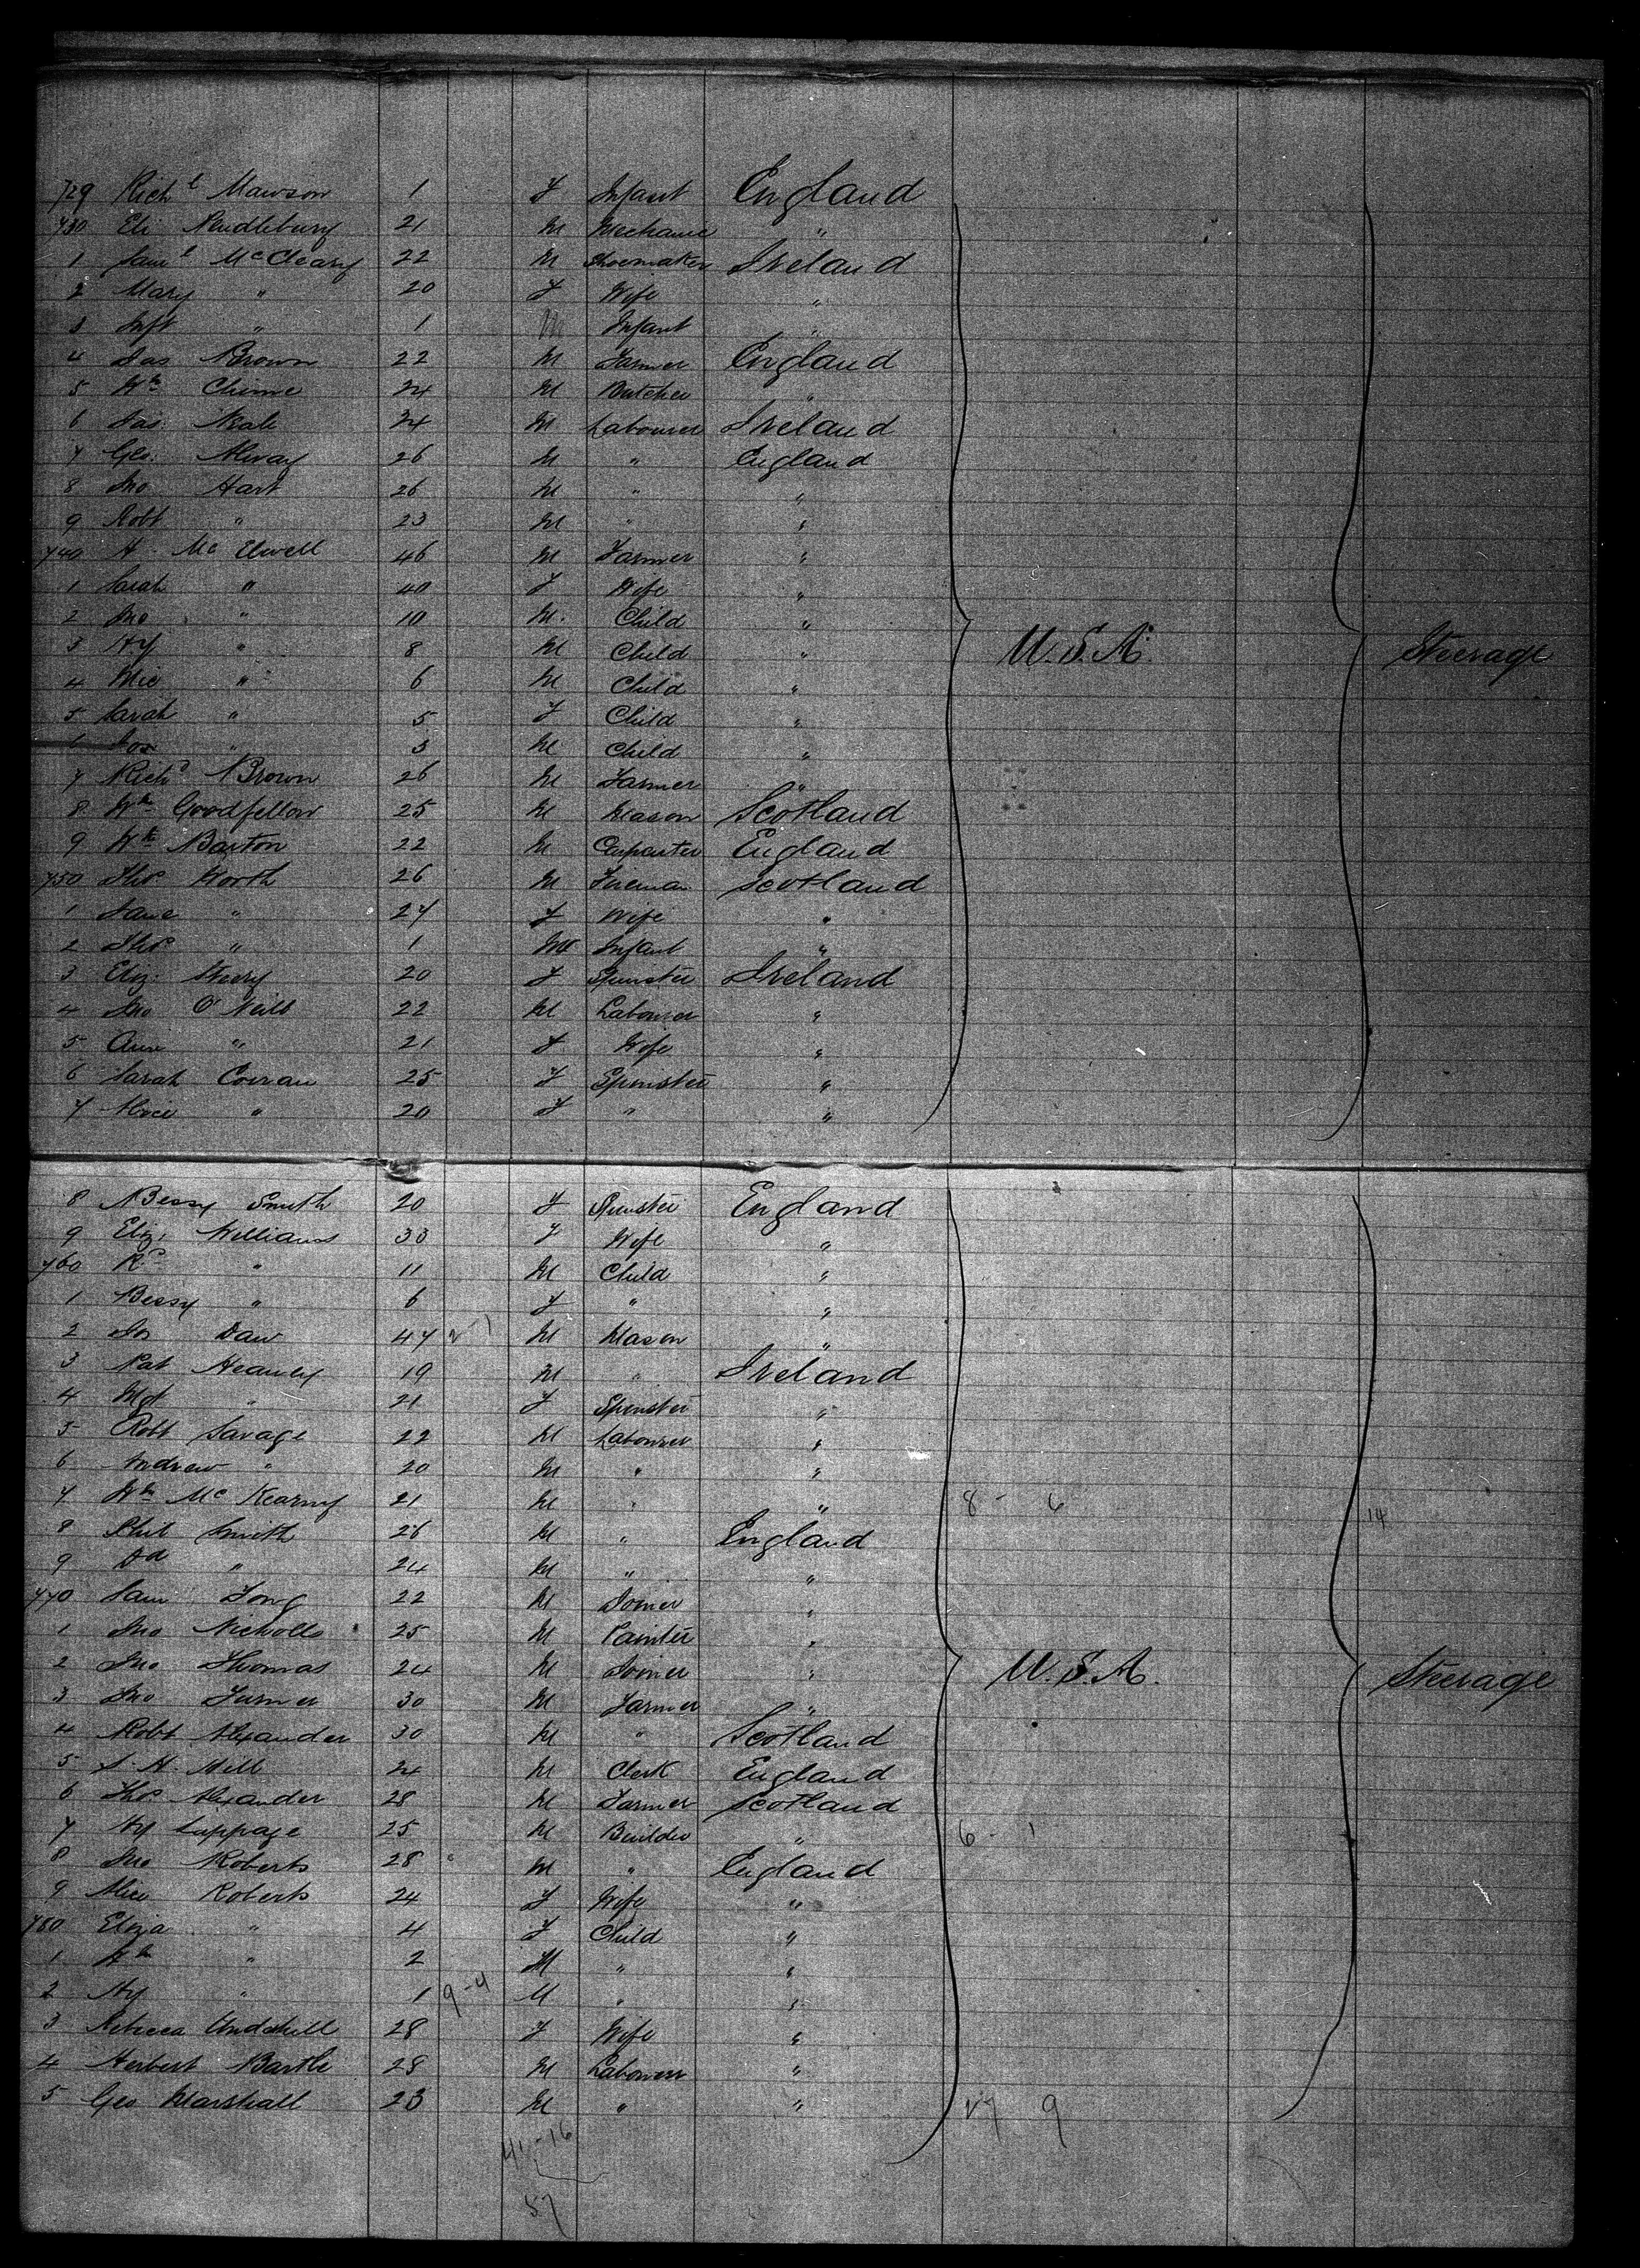 729 Rich^l Mawson 1 F Infant England
730 Eli Pendlebury 21 M Mechanic "
1 Sam^l McCleary 22 M Shoemaker Ireland
2 Mary " 20 F Wife "
3 Inft " 1 M Infant "
4 Jas Brown 22 M Farmer England
5 Wm Chime 24 M Butcher "
6 Jas Neale 24 M Labourer Ireland
7 Geo. Alway 26 M " England
8 Jno Hart 26 M " "
9 Robt " 23 M " "
740 H. Mc Elwell 46 M Farmer "
1 Sarah " 40 F Wife "
2 Jno " 10 M. Child "
3 Hy " 8 M Child " U.S.A. Steerage
4 Mic " 6 M Child "
5 Sarah " 5 F Child "
6 Jos " 3 M Child "
7 Richd Brown 26 M Farmer "
8 Wm Goodfellow 25 M Mason Scotland
9 Wm Barton 22 M Carpenter England
750 Thos North 26 M Fireman Scotland
1 Jane " 27 F Wife "
2 Thos " 1 M Infant "
3 Eliz: 20 F Spinster Ireland
4 Jno O'Neill 22 M Labourer "
5 Ann " 21 F Wife "
6 Sarah Corran 25 F Spinster "
7 Alice " 20 F " "
8 Bessy Smith 20 F Spinster England
9 Eliz. Williams 33 F Wife "
760 Rd " 11 M Child "
1 Bessy " 6 F " "
2 Jos Daw 47 M Mason "
3 Pat Heanley 19 M " Ireland
4 Mgt " 21 F Spinster "
5 Robt Savage 22 M Labourer "
6 Andrew " 20 M " "
7 Wm Mc Kearny 21 M " " 8 - 6 14
8 Phil Smith 26 M " England
9 Dd " 24 M " "
770 Sam Tong 22 M Joiner "
1 Jno Nicholls 25 M Painter "
2 Jno Thomas 24 M Joiner " U.S.A. Steerage
3 Jno Turner 30 M Farmer "
4 Robt Alexander 30 M " Scotland
5 S. H. Hill 24 M Clerk England
6 Thos Alexander 28 M Farmer Scotland
7 Hy Lappage 25 M Builder " 6 - 1
8 Jno Roberts 28 M " England
9 Alice Roberts 24 F Wife "
780 Eliza " 4 F Child "
1 Wm " 2 M " "
2 Hy " 1 9-4 M " "
3 Rebecca Undskill 28 F Wife "
4 Herbert Bartle 28 M Labourer "
5 Geo Marshall 23 M " " 27 9
41-16
57